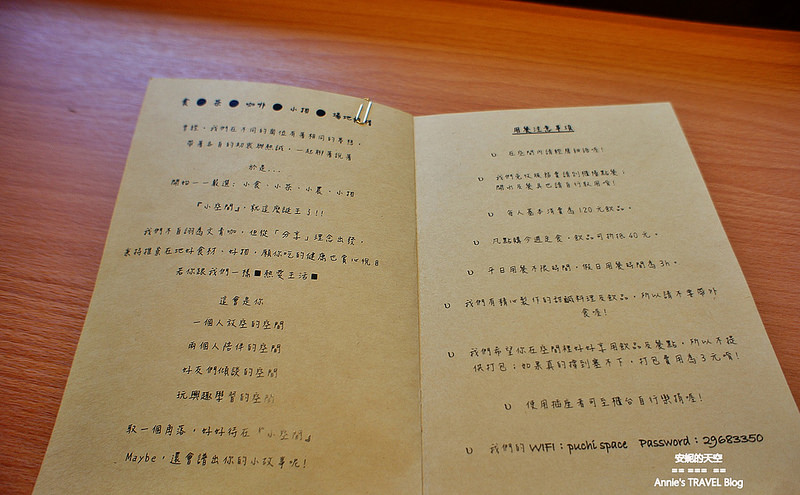 食●茶●咖啡●小酒●場地
曾經，我們在不同的崗位有著相同的夢想，
帶著各自的初衷與熱誠，一起聊著說著
於是...
開始一一嚴選：小食、小茶、小農、小酒
『小空間』，就這麼誕生了！！
我們不自詡為文青咖，但從「分享」理念出發，
兼持探索在地好食材、好酒，願你吃的健康也賞心悅目
若你跟我們一樣■熱愛生活■
這會是你
一個人放空的空間
兩個人陪伴的空間
好友們傾談的空間
玩興趣學習的空間
找一個角落，好好待在『小空間』
Maybe，這會譜出你的小故事呢！
用餐注意事項
υ 在空間內請輕聲細語喔！
υ 我們免收服務費請到櫃檯點餐，
開水及餐具也請自行取用唷！
υ 每人基本消費為120元飲品。
υ 凡點購今週定食，飲品可折抵60元。
υ 平日用餐不限時間，假日用餐時間為3h。
υ 我們有精心製作的甜鹹料理及飲品，所以請不要帶外
食喔！
υ 我們希望你在空間裡好好享用飲品及餐點，所以不提
供打包；如果真的撐到塞不下，打包費用為3元唷！
υ 使用插座者可至櫃台自行樂捐喔！
υ 我們的WIFI：puchi space Password：29683350
安妮的天空
Annie's TRAVEL Blog